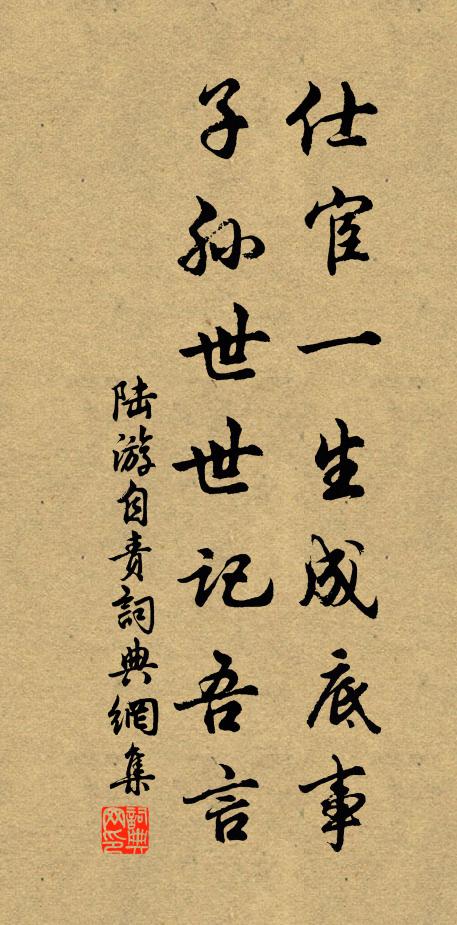 仕宦一生成底事
子孙世世记吾言
陆游自责詞典網集
詞典网印